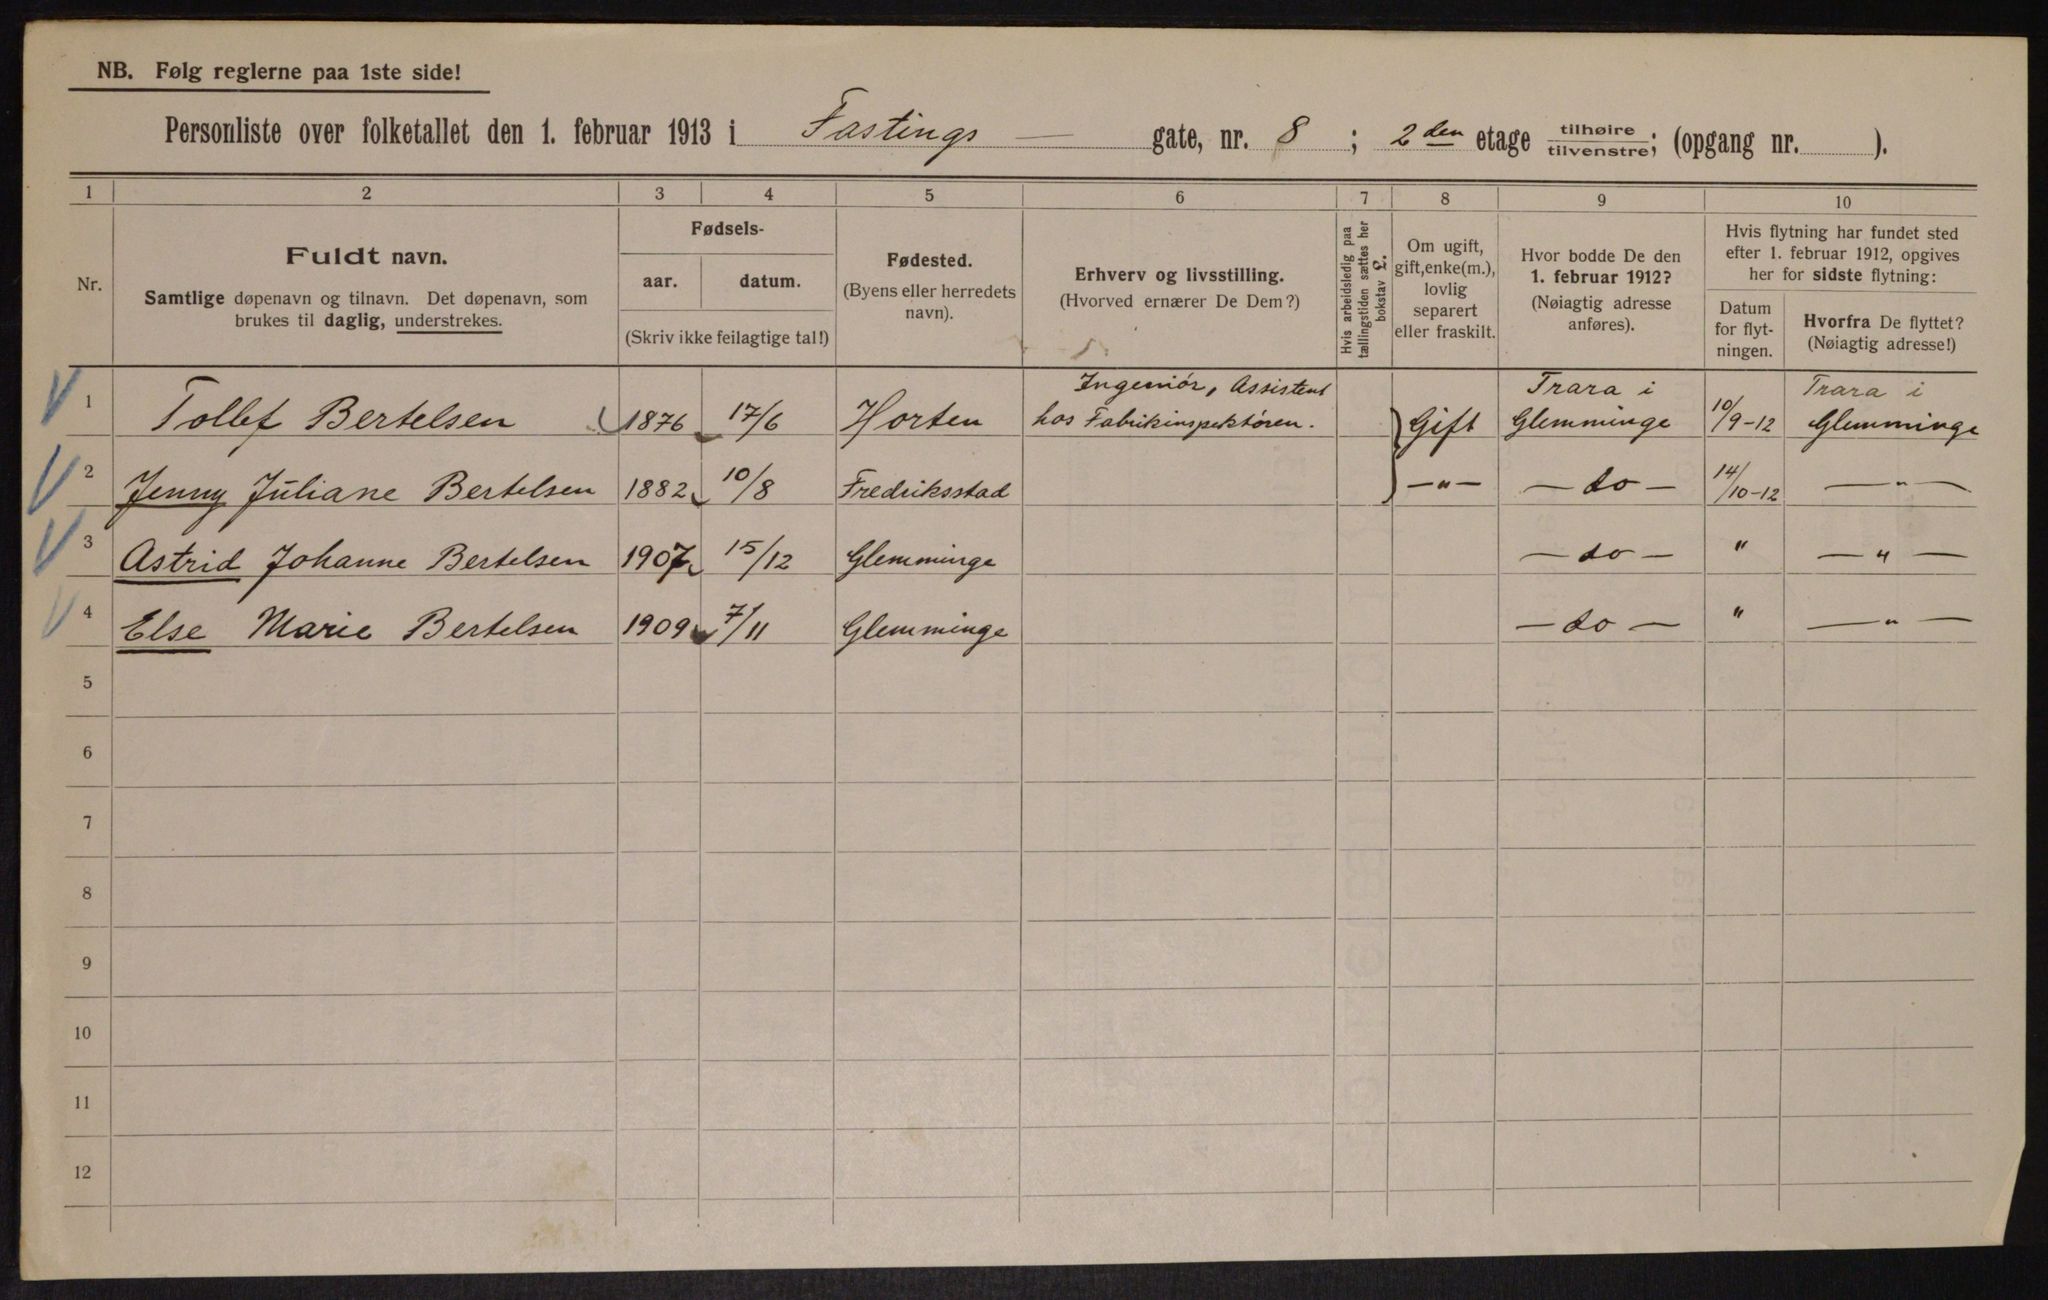 NB. Følg reglerne paa 1ste side!
Personliste over folketallet den 1. februar 1913 i Fastings — gate, nr. 8 ; 2den etage tilhøire/tilvenstre; (opgang nr. ).
1 2 3 4 5 6 7 8 9 10
Nr.
Fuldt navn.
Samtlige døpenavn og tilnavn. Det døpenavn, som
brukes til daglig, understrekes.
Fødsels-
aar. datum.
(Skriv ikke feilagtige tal!)
Fødested.
(Byens eller herredets
navn).
Erhverv og livsstilling.
(Hvorved ernærer De Dem?)
Hvis arbeidsledig paa
tællingstiden sættes her
bokstav £.
Om ugift,
gift, enke(m.),
lovlig
separert
eller fraskilt.
Hvor bodde De den
1. februar 1912?
(Nøiagtig adresse
anføres).
Hvis flytning har fundet sted
efter 1. februar 1912, opgives
her for sidste flytning:
Datum
for flyt-
ningen.
Hvorfra De flyttet?
(Nøiagtig adresse!)
Ingeniør, Assistent Trara i Trara i
1 Tollef Bertelsen 1876 17/6 Horten hos Fabrikinspektøren. Gift Glemminge 10/9-12 Glemminge
2 Jenny Juliane Bertelsen 1882 10/8 Fredriksstad —"— — do — 14/10-12 — " —
3 Astrid Johanne Bertelsen 1907 15/12 Glemminge — do — " — " —
4 Else Marie Bertelsen 1909 7/11 Glemminge — do — " — " —
5
6
7
8
9
10
11
12